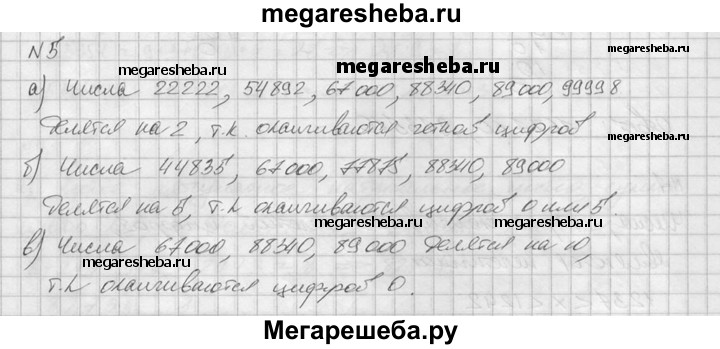 megaresheba.ru
N 5
megaresheba.ru
megaresheba.ru
megaresheba.ru
а) Числа 22222, 54892, 67000, 88340, 89000, 99998
делятся на 2, т.к. оканчиваются четной цифрой
megaresheba.ru
б) Числа 44835, 67000, 77875, 88340, 89000
megaresheba.ru
делятся на 5, т.к оканчиваются цифрой 0 или 5
megaresheba.ru
в) Числа 67000, 88340, 89000 делятся на 10,
megaresheba.ru
megaresheba.ru
т.к оканчиваются цифрой 0.
Мегарешеба.ру